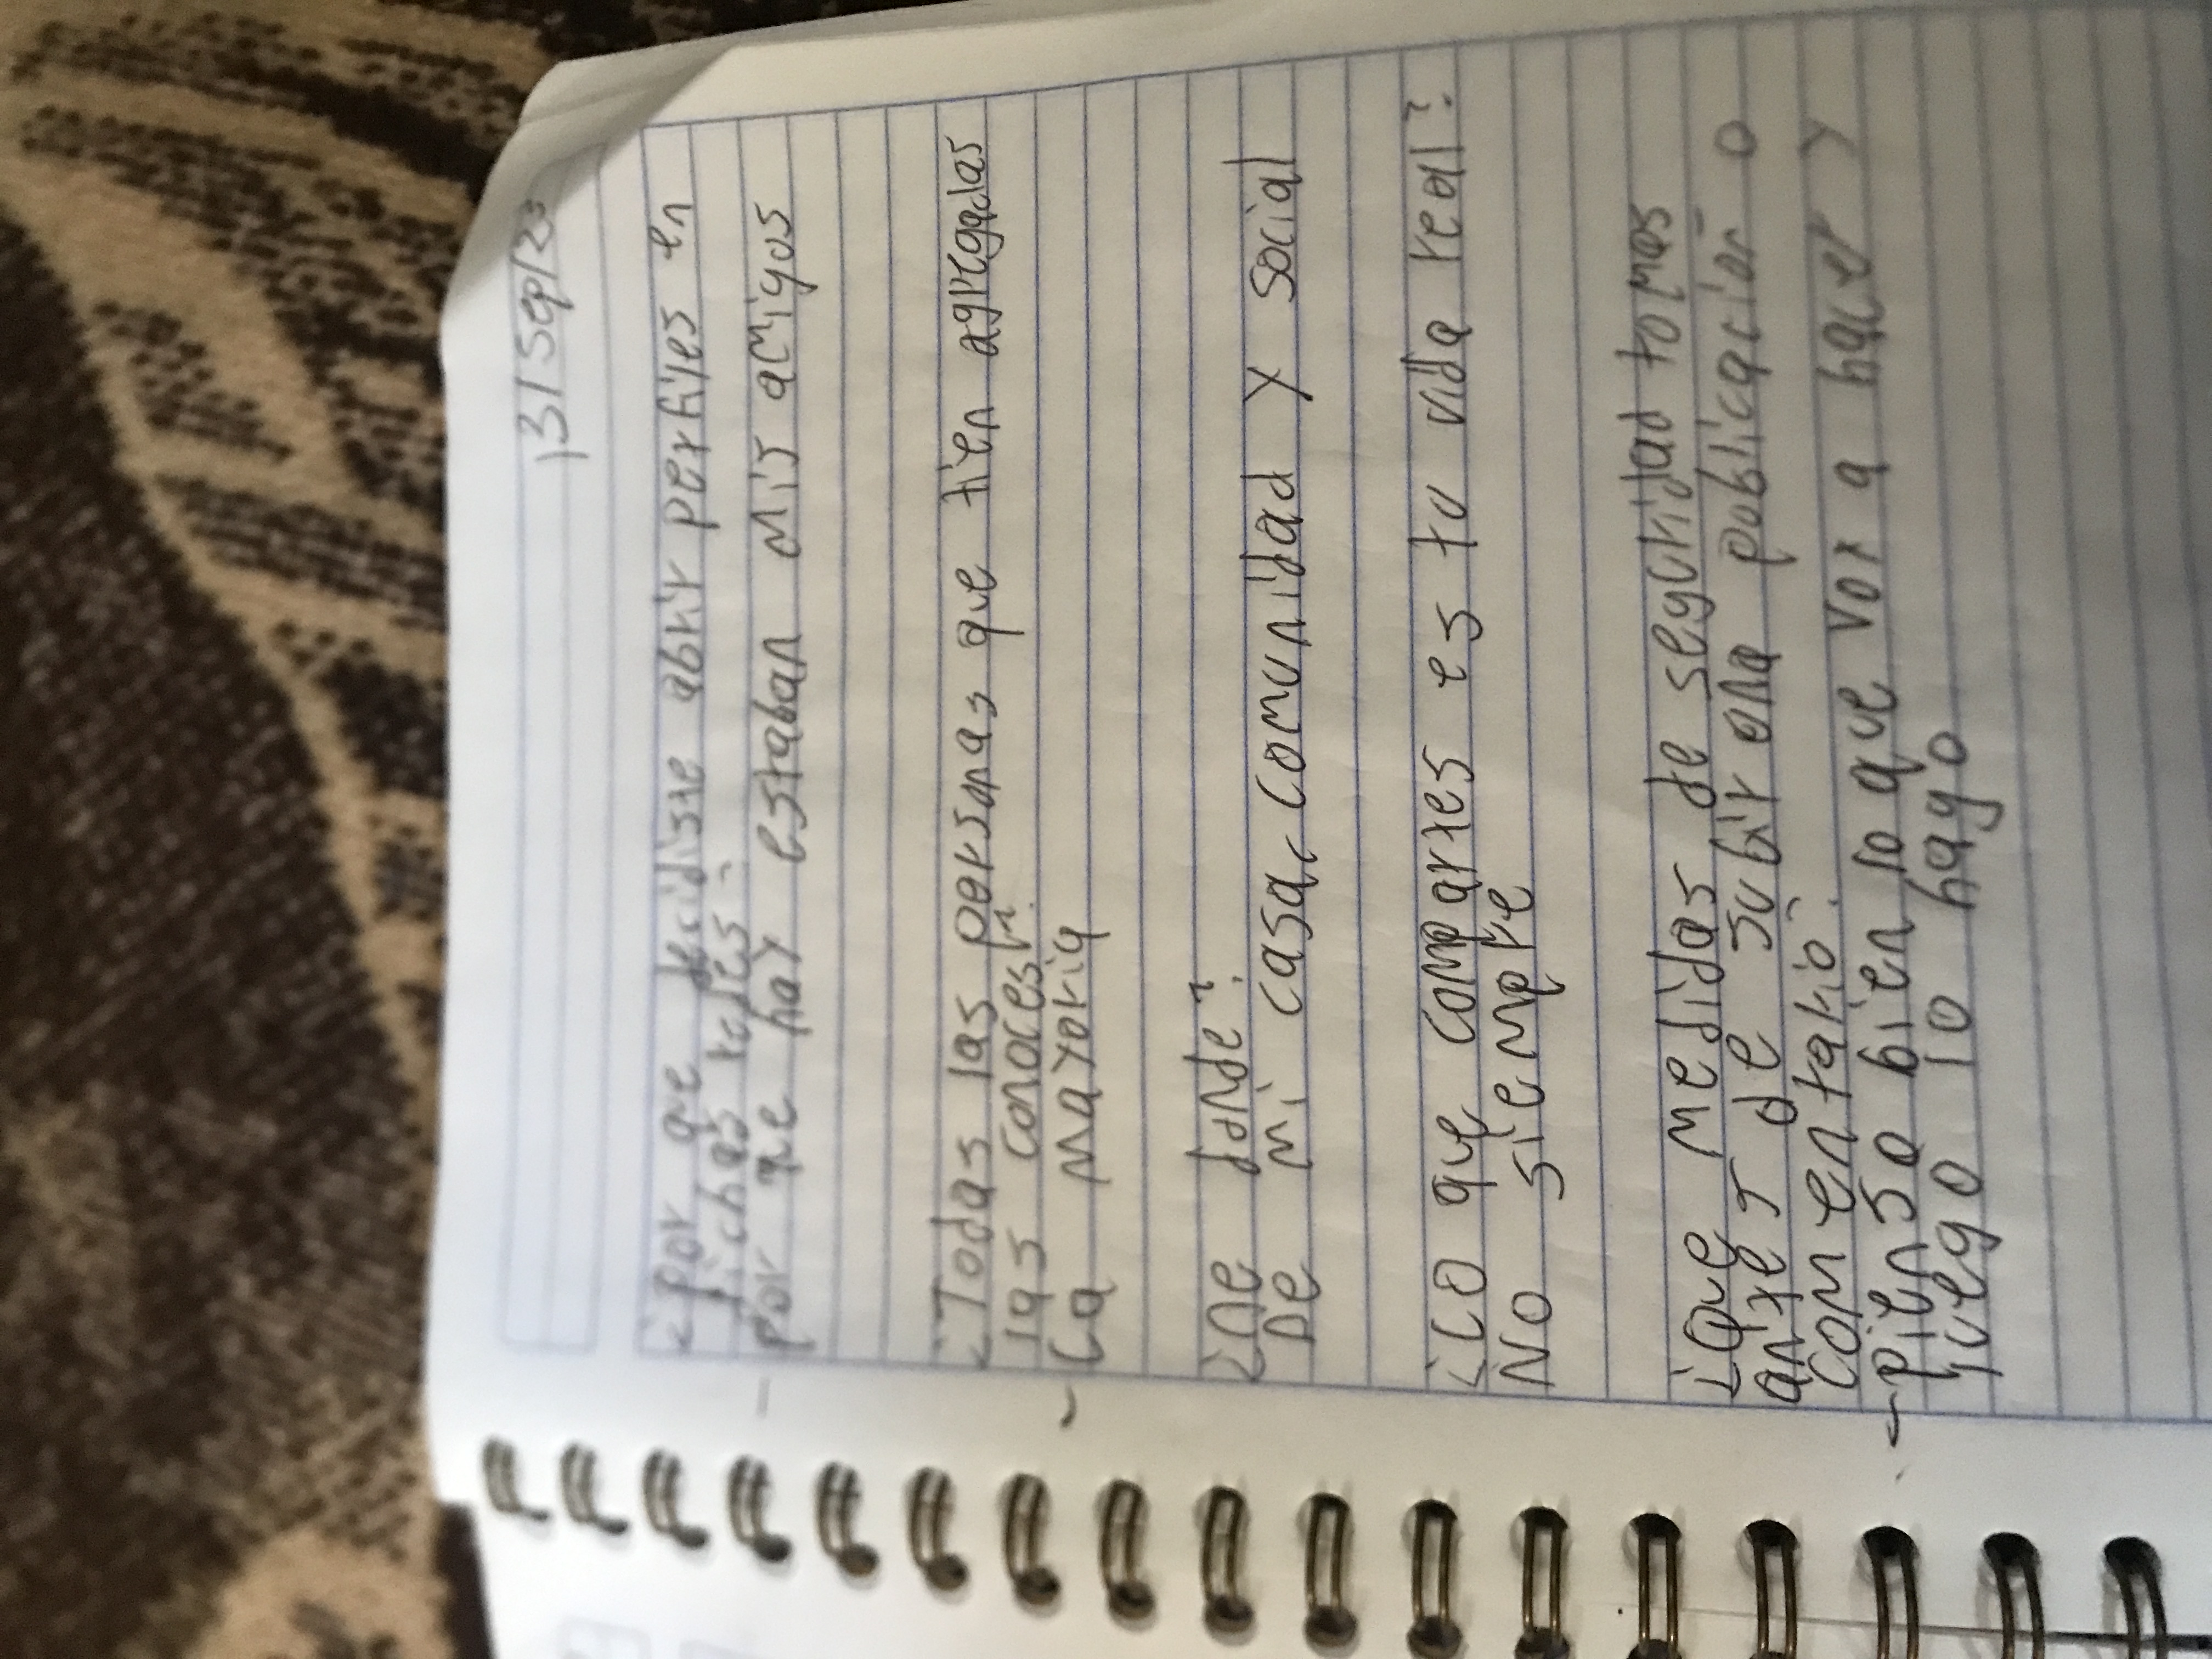 13/Sep/23
¿Por que decidiste abrir perfiles en
dichas redes?
- Por que hay estaban mis amigos
¿Todas las personas que tien agregadas
las conoces?
- La mayoria
¿De donde?
De mi casa, comunidad y social
¿Lo que compartes es tu vida real?
No siempre
¿Que medidas de seguridad tomas
antes de subir una publicación o
comentario?
- Pienso bien lo que voy a hacer y
luego lo hago